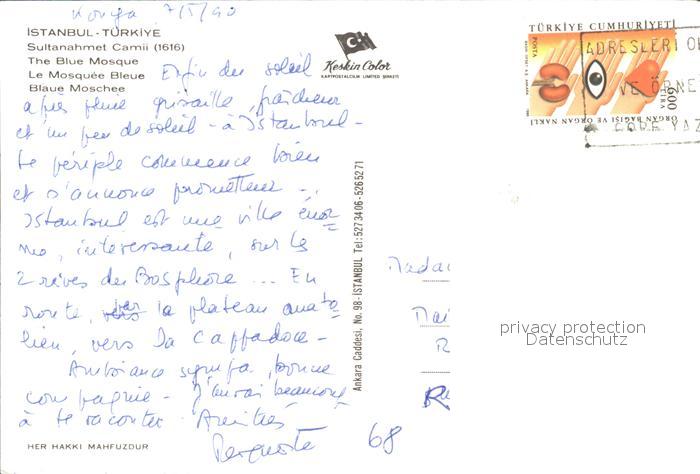 Konya 7/5/90
İSTANBUL-TÜRKİYE
Sultanahmet Camii (1616)
The Blue Mosque
Le Mosquée Bleue
Blaue Moschee
Enfin du soleil
après pluie grisaille, fraîcheur
et un peu de soleil - à Istanbul -
Le périple commence bien
et s'annonce prometteur -.
Istanbul est une ville énor=
me, intéressante, sur les
2 rives du Bosphore ... En
route, par la plateau anato=
lien, vers la Cappadoce -
Ambiance sympa, bonne
compagnie - J'aurai beaucoup
à te raconter - Amitiés
HER HAKKI MAHFUZDUR
68
Keskin Color
KARTPOSTALCILIK LIMITED ŞİRKETİ
Ankara Caddesi, No. 98-İSTANBUL Tel: 5273406-5265271
TÜRKİYE CUMHURİYETİ
POSTA
600
LİRA
ORGAN BAĞIŞI VE ORGAN NAKLİ
ADRESLERİ
VE ÖRNE
GÖRE YAZ
privacy protection
Datenschutz